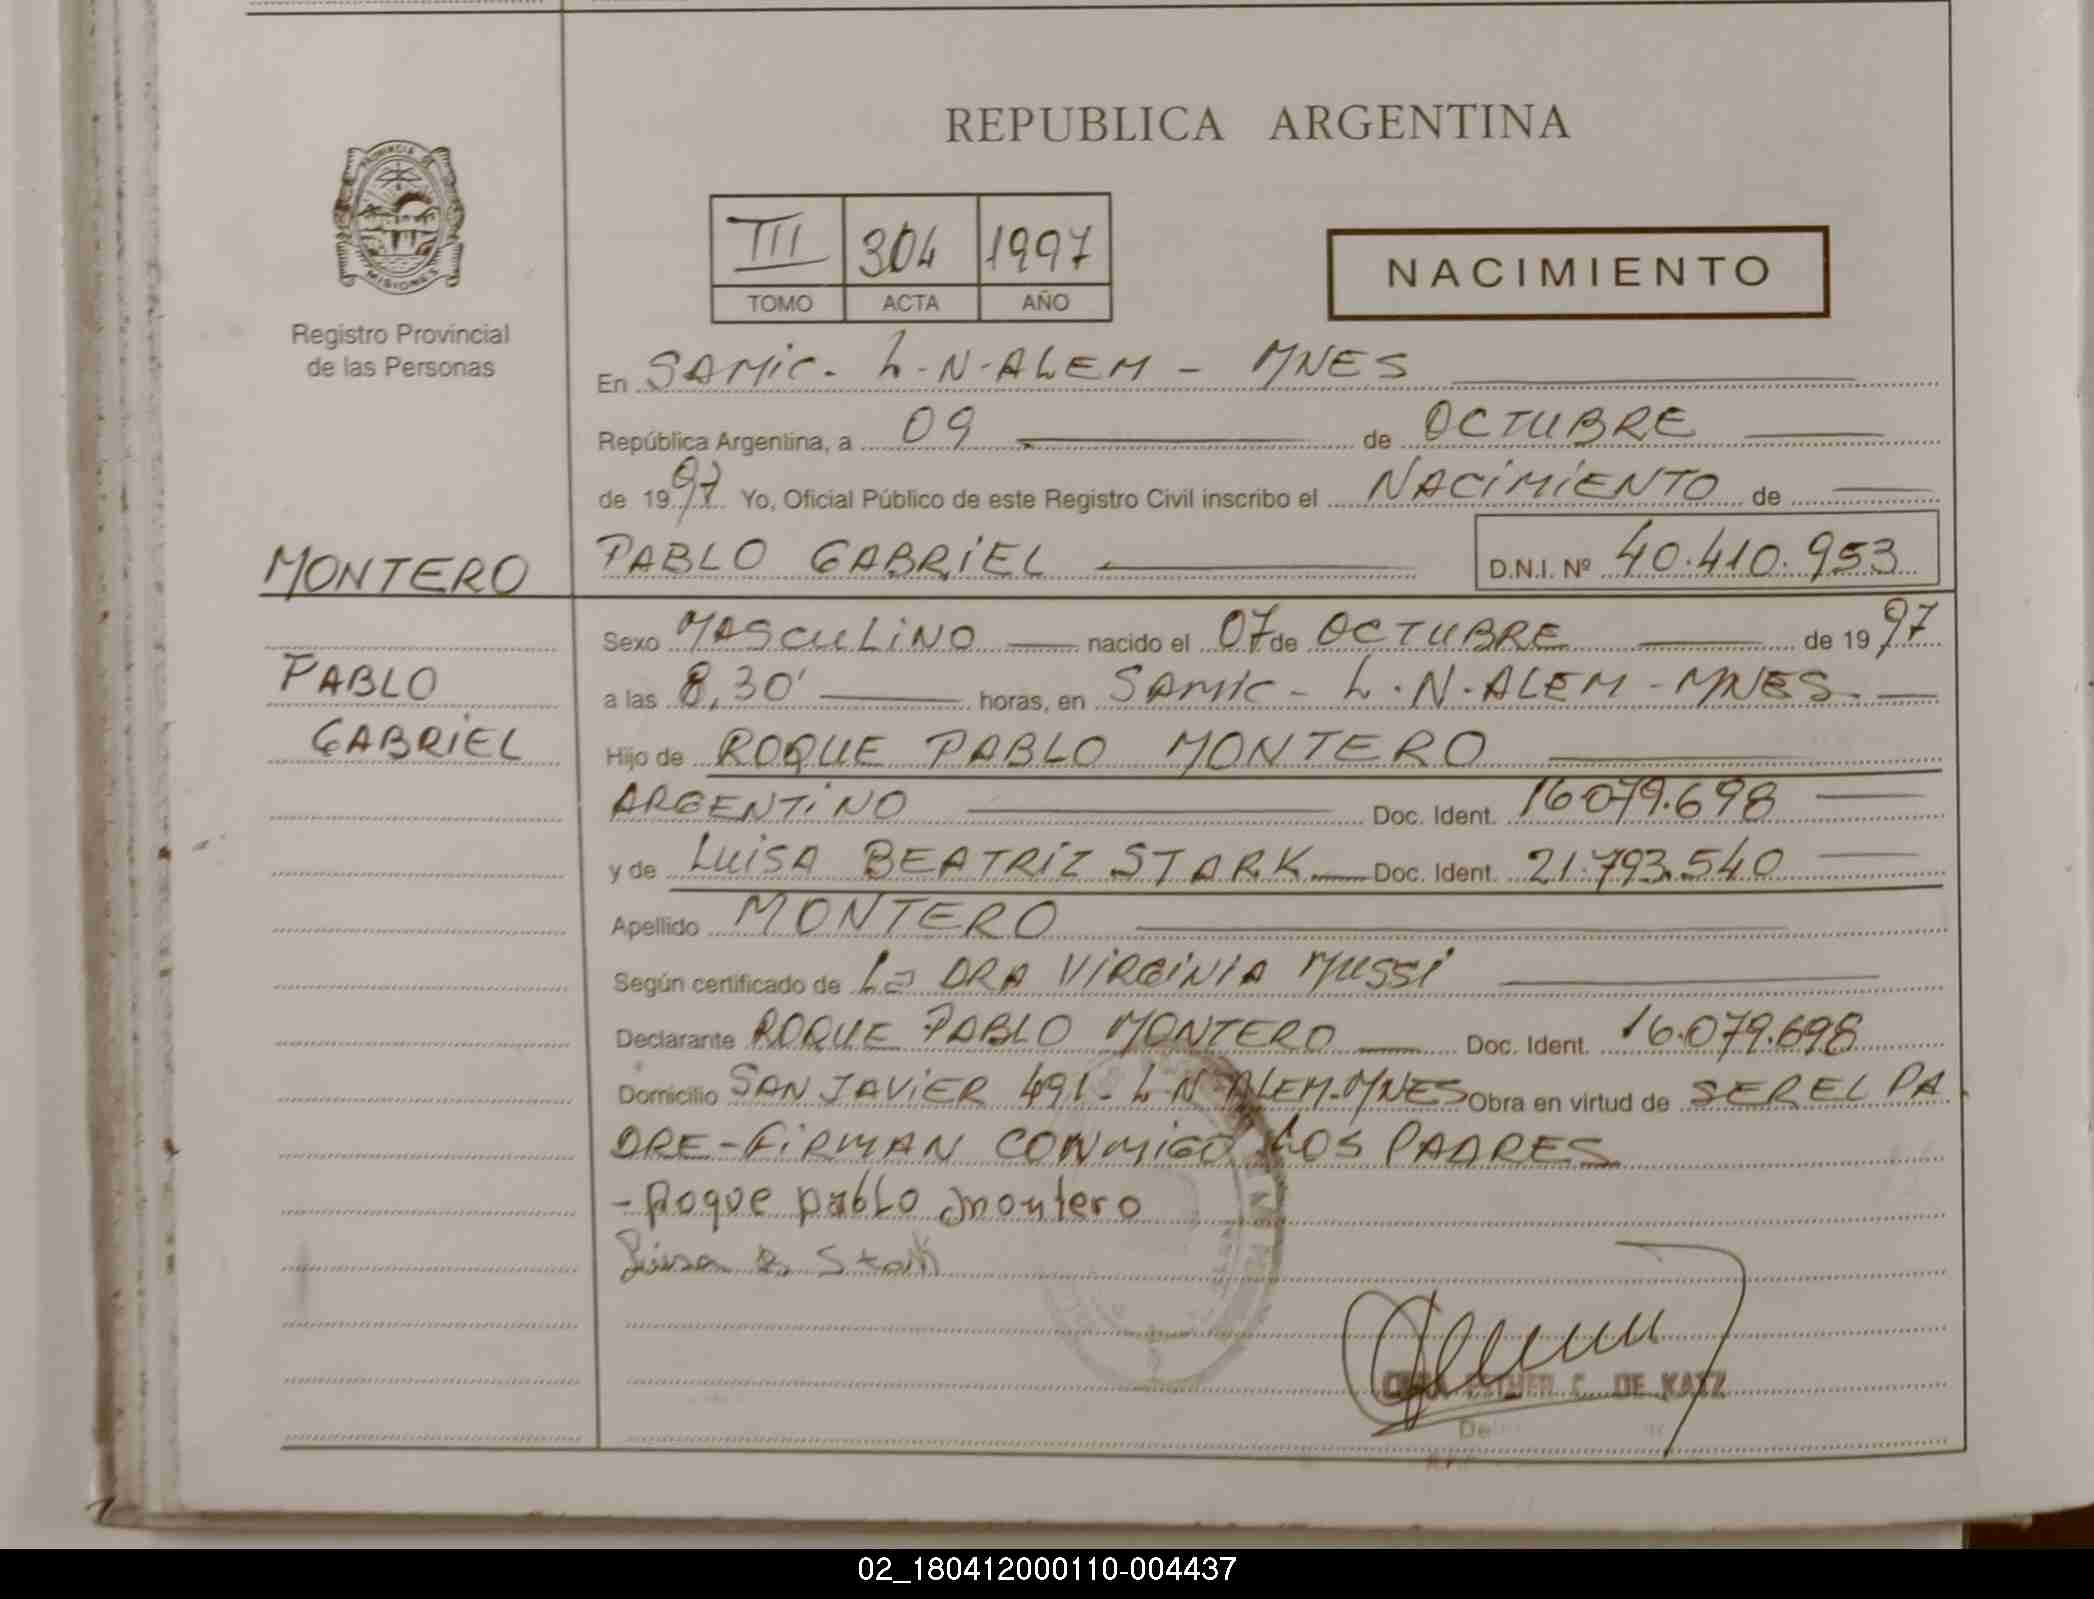 REPUBLICA ARGENTINA
PROVINCIA DE
MISIONES
Registro Provincial
de las Personas
III 304 1997
TOMO ACTA AÑO
NACIMIENTO
En SAMIC. L.N.ALEM - MNES
República Argentina, a 09 de OCTUBRE
de 1997 Yo, Oficial Público de este Registro Civil inscribo el NACIMIENTO de
MONTERO PABLO GABRIEL D.N.I. Nº 40.410.953
Sexo MASCULINO nacido el 07 de OCTUBRE de 1997
PABLO
a las 8,30' horas, en SAMIC - L.N.ALEM - MNES
GABRIEL
Hijo de ROQUE PABLO MONTERO
ARGENTINO Doc. Ident. 16.079.698
y de LUISA BEATRIZ STARK Doc. Ident. 21.793.540
Apellido MONTERO
Según certificado de La DRA VIRGINIA MUSSI
Declarante ROQUE PABLO MONTERO Doc. Ident. 16.079.698
Domicilio SAN JAVIER 491- L N ALEM-MNES Obra en virtud de SER EL PA
DRE-FIRMAN CONMIGO LOS PADRES
- Roque pabLo montero
Luisa B. Stark
ESTHER C. DE KATZ
02_180412000110-004437